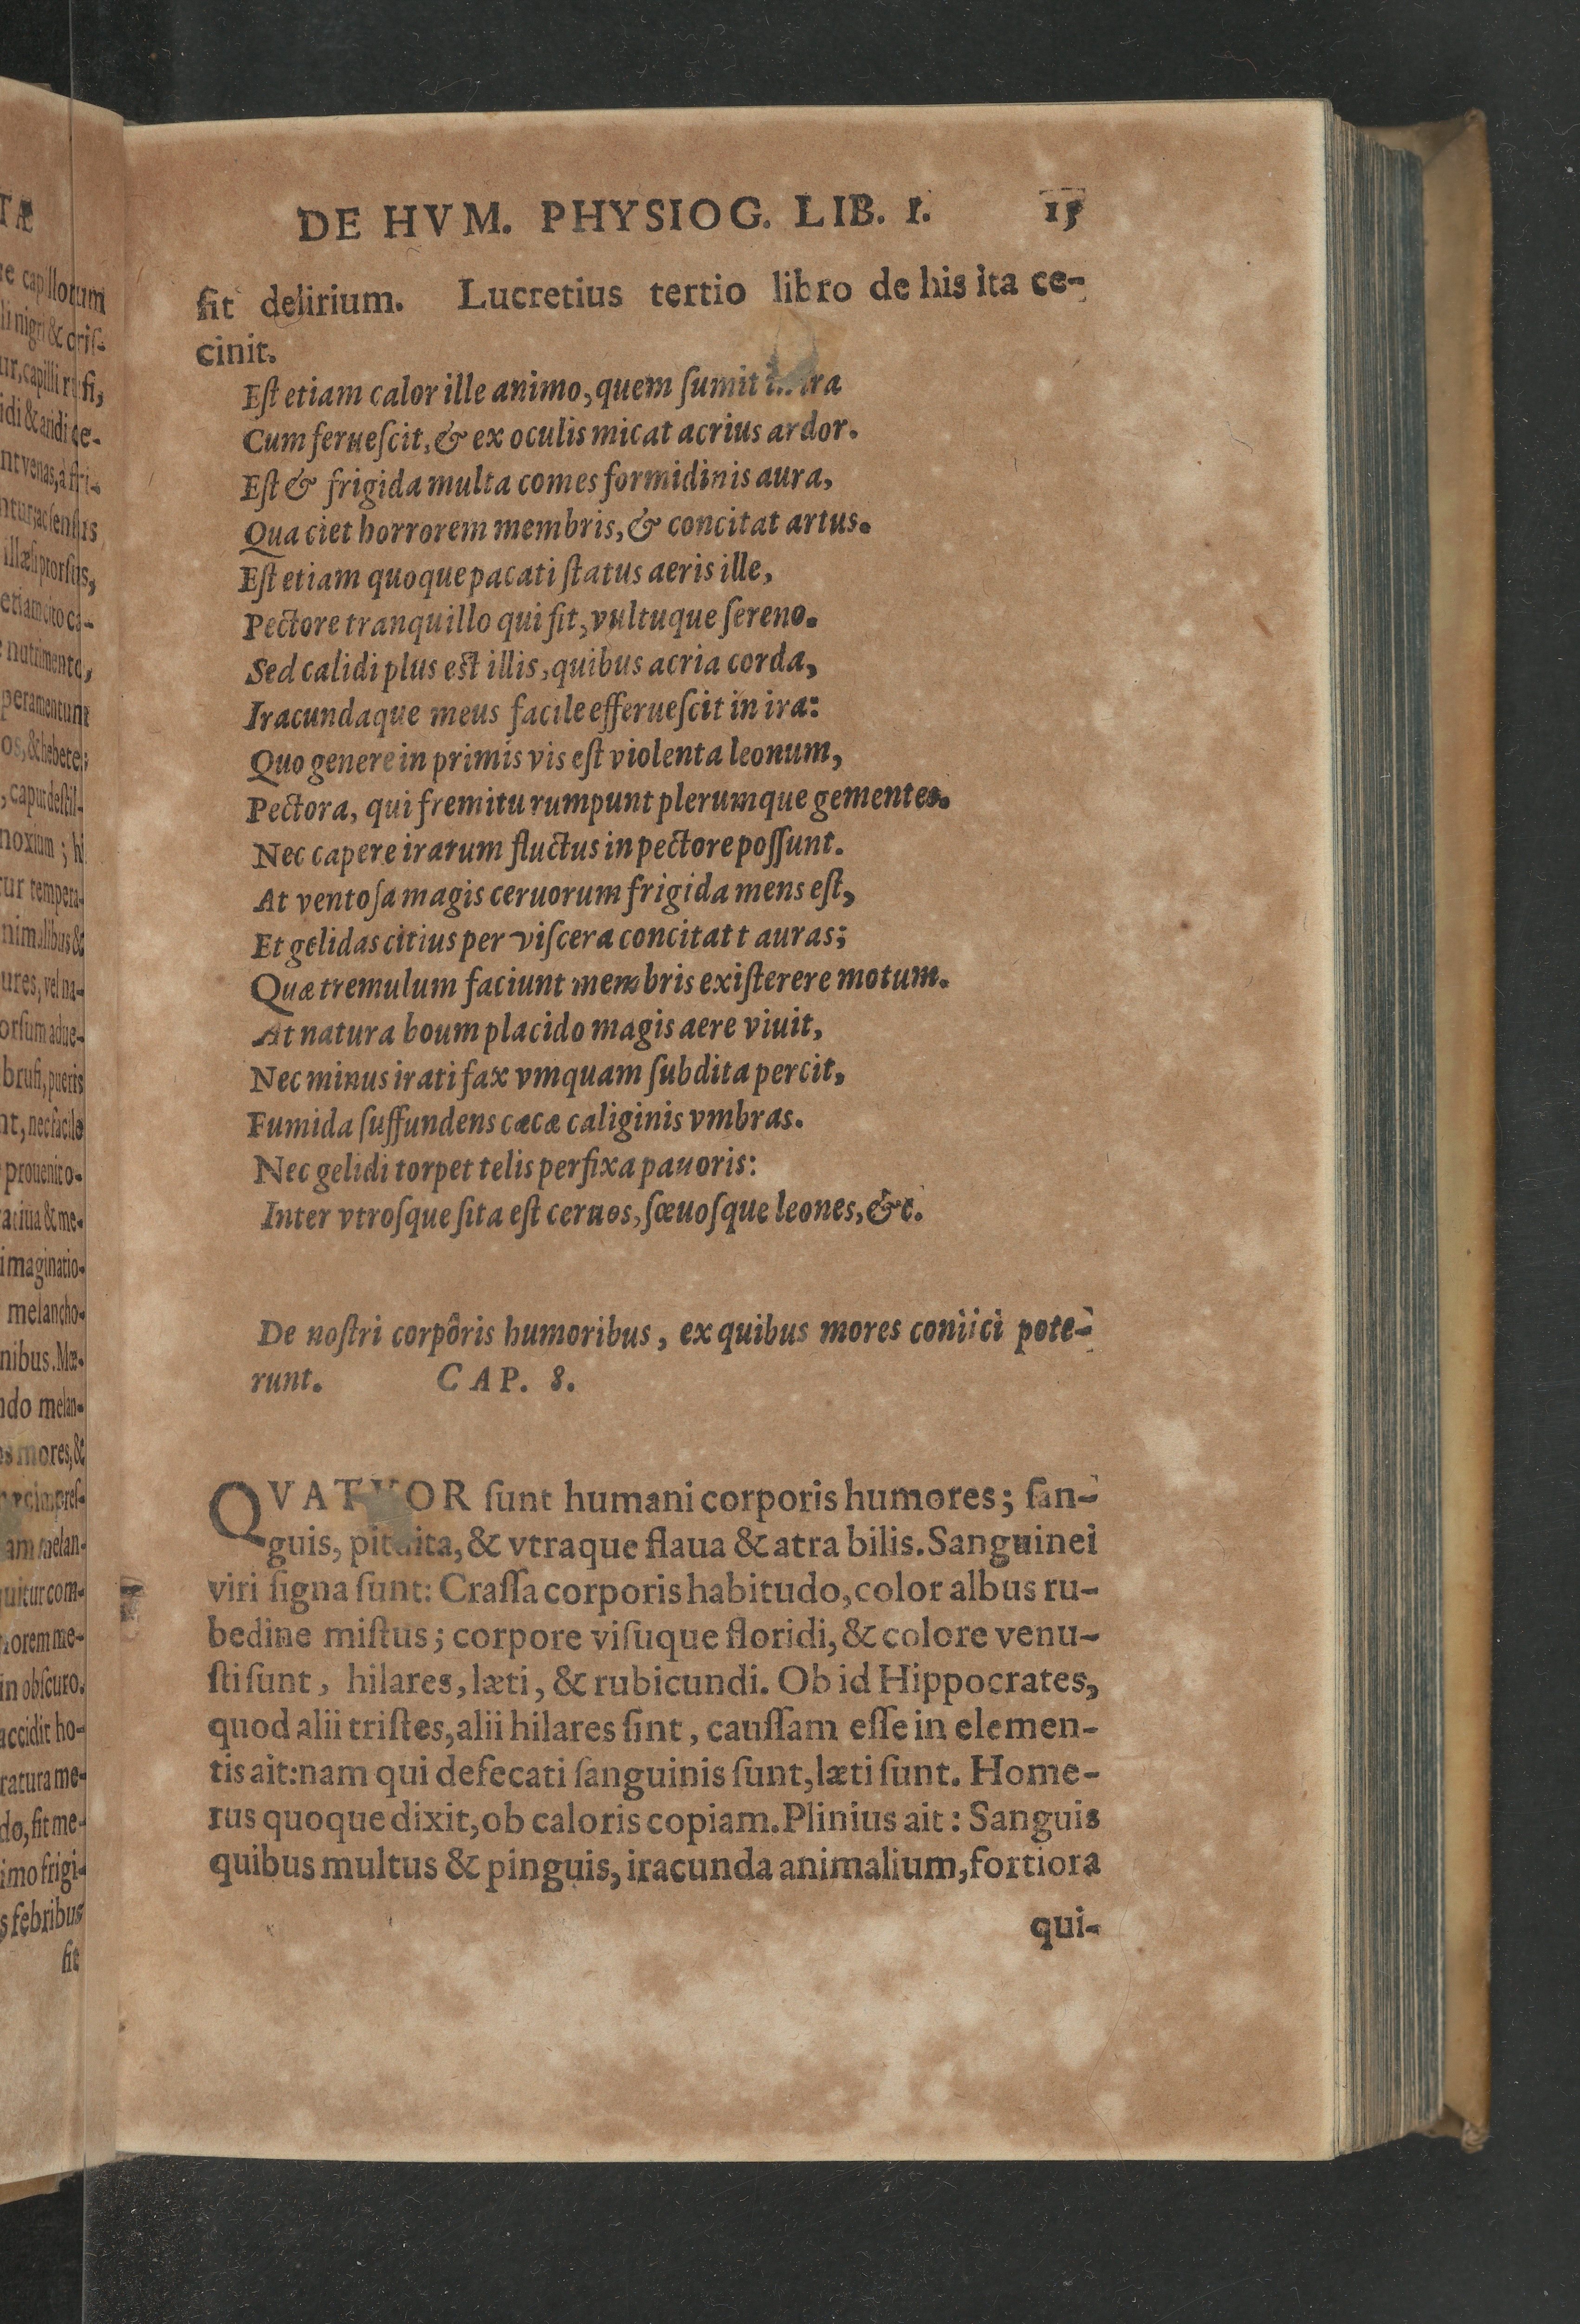 DE HVM. PHYSIOG. LIB. I. 15
fit delirium. Lucretius tertio libro de his ita ce-
cinit.
Eſt etiam calor ille animo, quem ſumit ira
Cum ferueſcit, & ex oculis micat acrius ardor.
Eſt & frigida multa comes formidinis aura,
Qua ciet horrorem membris, & concitat artus.
Eſt etiam quoque pacati ſtatus aeris ille,
Pectore tranquillo qui fit, vultuque ſereno.
Sed calidi plus eſt illis, quibus acria corda,
Iracundaque meus facile efferueſcit in ira:
Quo genere in primis vis eſt violenta leonum,
Pectora, qui fremitu rumpunt plerumque gementes.
Nec capere irarum fluctus in pectore poſſunt.
At ventoſa magis ceruorum frigida mens eſt,
Et gelidas citius per viſcera concitat t auras;
Quæ tremulum faciunt membris exiſterere motum.
At natura boum placido magis aere viuit,
Nec minus irati fax vmquam ſubdita percit,
Fumida ſuffundens cæcæ caliginis vmbras.
Nec gelidi torpet telis perfixa pauoris:
Inter vtroſque ſita eſt ceruos, ſœuoſque leones, &c.
De noſtri corpôris humoribus, ex quibus mores coniici pote-
runt. CAP. 8.
QVATVOR ſunt humani corporis humores; ſan-
guis, pituita, & vtraque flaua & atra bilis. Sanguinei
viri ſigna ſunt: Craſſa corporis habitudo, color albus ru-
bedine miſtus; corpore viſuque floridi, & colore venu-
ſti ſunt, hilares, læti, & rubicundi. Ob id Hippocrates,
quod alii triſtes, alii hilares ſint, cauſſam eſſe in elemen-
tis ait: nam qui defecati ſanguinis ſunt, læti ſunt. Home-
rus quoque dixit, ob caloris copiam. Plinius ait: Sanguis
quibus multus & pinguis, iracunda animalium, fortiora
qui-